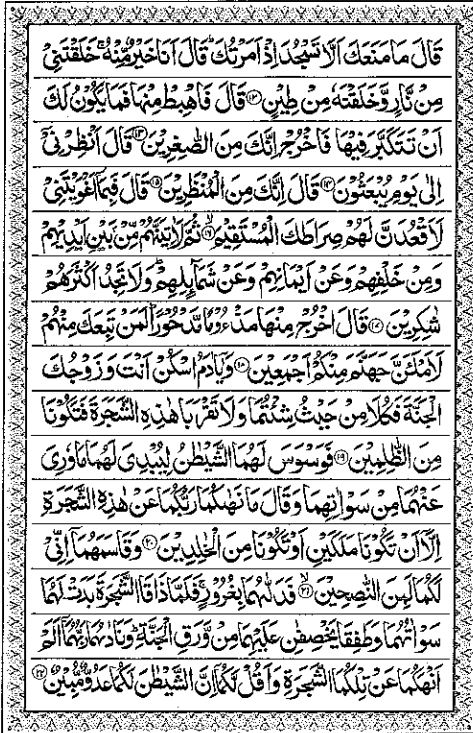 قَالَ مَا مَنَعَكَ اَلَّا تَسْجُدَ اِذْ اَمَرْتُكَ ؕ قَالَ اَنَا خَيْرٌ مِّنْهُ ۚ خَلَقْتَنِيْ
مِنْ نَّارٍ وَّخَلَقْتَهٗ مِنْ طِيْنٍ ﴿۱۲﴾ قَالَ فَاهْبِطْ مِنْهَا فَمَا يَكُوْنُ لَكَ
اَنْ تَتَكَبَّرَ فِيْهَا فَاخْرُجْ اِنَّكَ مِنَ الصّٰغِرِيْنَ ﴿۱۳﴾ قَالَ اَنْظِرْنِيْۤ
اِلٰى يَوْمِ يُبْعَثُوْنَ ﴿۱۴﴾ قَالَ اِنَّكَ مِنَ الْمُنْظَرِيْنَ ﴿۱۵﴾ قَالَ فَبِمَاۤ اَغْوَيْتَنِيْ
لَاَقْعُدَنَّ لَهُمْ صِرَاطَكَ الْمُسْتَقِيْمَ ﴿۱۶﴾ ثُمَّ لَاٰتِيَنَّهُمْ مِّنْۢ بَيْنِ اَيْدِيْهِمْ
وَمِنْ خَلْفِهِمْ وَعَنْ اَيْمَانِهِمْ وَعَنْ شَمَآئِلِهِمْ ؕ وَلَا تَجِدُ اَكْثَرَهُمْ
شٰكِرِيْنَ ﴿۱۷﴾ قَالَ اخْرُجْ مِنْهَا مَذْءُوْمًا مَّدْحُوْرًا ؕ لَمَنْ تَبِعَكَ مِنْهُمْ
لَاَمْلَـَٔنَّ جَهَنَّمَ مِنْكُمْ اَجْمَعِيْنَ ﴿۱۸﴾ وَيٰۤاٰدَمُ اسْكُنْ اَنْتَ وَزَوْجُكَ
الْجَنَّةَ فَكُلَا مِنْ حَيْثُ شِئْتُمَا وَلَا تَقْرَبَا هٰذِهِ الشَّجَرَةَ فَتَكُوْنَا
مِنَ الظّٰلِمِيْنَ ﴿۱۹﴾ فَوَسْوَسَ لَهُمَا الشَّيْطٰنُ لِيُبْدِيَ لَهُمَا مَا وٗرِيَ
عَنْهُمَا مِنْ سَوْاٰتِهِمَا وَقَالَ مَا نَهٰىكُمَا رَبُّكُمَا عَنْ هٰذِهِ الشَّجَرَةِ
اِلَّاۤ اَنْ تَكُوْنَا مَلَكَيْنِ اَوْ تَكُوْنَا مِنَ الْخٰلِدِيْنَ ﴿۲۰﴾ وَقَاسَمَهُمَاۤ اِنِّيْ
لَكُمَا لَمِنَ النّٰصِحِيْنَ ﴿۲۱﴾ فَدَلّٰىهُمَا بِغُرُوْرٍ ۚ فَلَمَّا ذَاقَا الشَّجَرَةَ بَدَتْ لَهُمَا
سَوْاٰتُهُمَا وَطَفِقَا يَخْصِفٰنِ عَلَيْهِمَا مِنْ وَّرَقِ الْجَنَّةِ ؕ وَنَادٰىهُمَا رَبُّهُمَاۤ اَلَمْ
اَنْهَكُمَا عَنْ تِلْكُمَا الشَّجَرَةِ وَاَقُلْ لَّكُمَاۤ اِنَّ الشَّيْطٰنَ لَكُمَا عَدُوٌّ مُّبِيْنٌ ﴿۲۲﴾